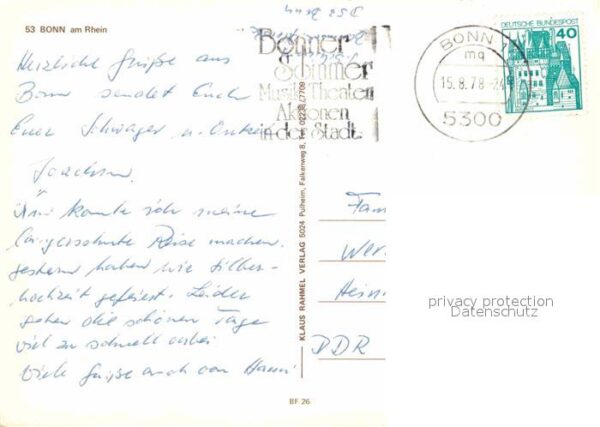 53 BONN am Rhein
Herzliche Grüße aus
Bonn sendet Euch
Euer Schwager u. Onkel
Joachim.
Nun konnte ich meine
langersehnte Reise machen.
gestern haben wir Silber-
hochzeit gefeiert. Leider
gehen die schönen Tage
viel zu schnell vorbei
Viele Grüße auch von Hanni
Bonner
Sommer
Musik Theater
Aktionen
in der Stadt
BONN 1
mq
15.8.78
5300
DEUTSCHE BUNDESPOST
40
KLAUS RAHMEL VERLAG 5024 Pulheim, Falkenweg 8, Tel. 02238/7709
Fam
Wer
Hein
DDR
privacy protection
Datenschutz
BF 26